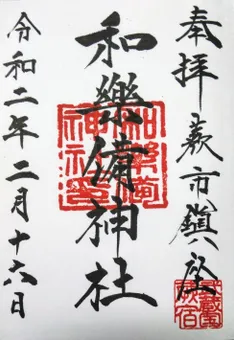 奉拝 蕨市鎮座
和樂備神社
令和二年二月十六日
和樂備神社印